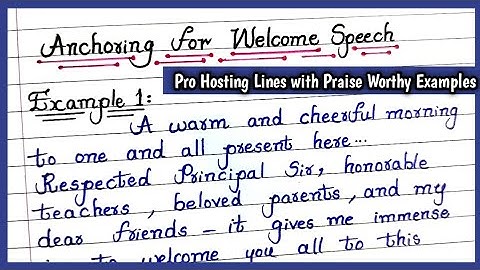 Anchoring for Welcome Speech
Pro Hosting Lines with Praise Worthy Examples
Example 1:
A warm and cheerful morning
to one and all present here...
Respected Principal Sir, honorable
teachers, beloved parents, and my
dear friends - it gives me immense
to welcome you all to this